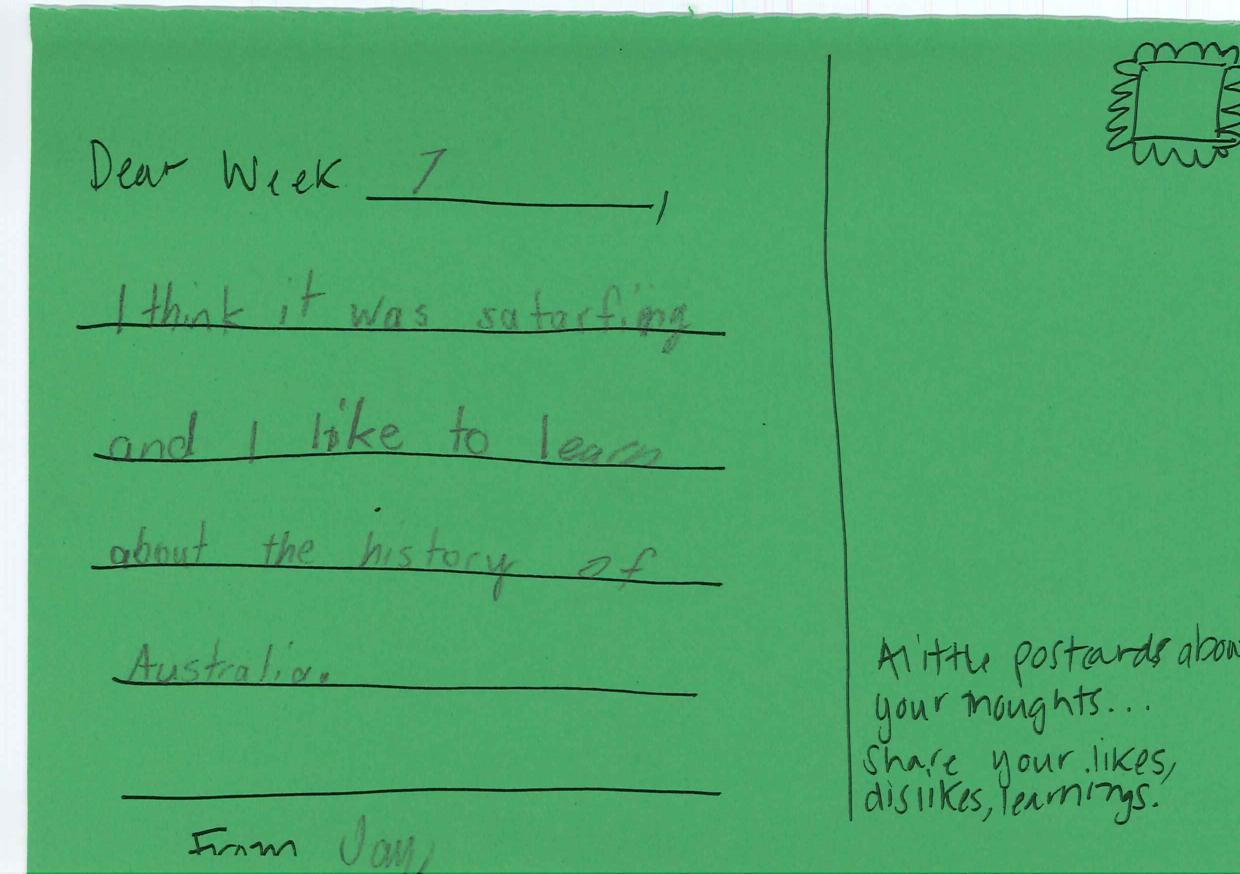 Dear Week 7,
I think it was satarfiing
and I like to learn
about the history of
Australia.
From Jay
A little postcards abou
your thoughts...
Share your likes,
dislikes, learnings.